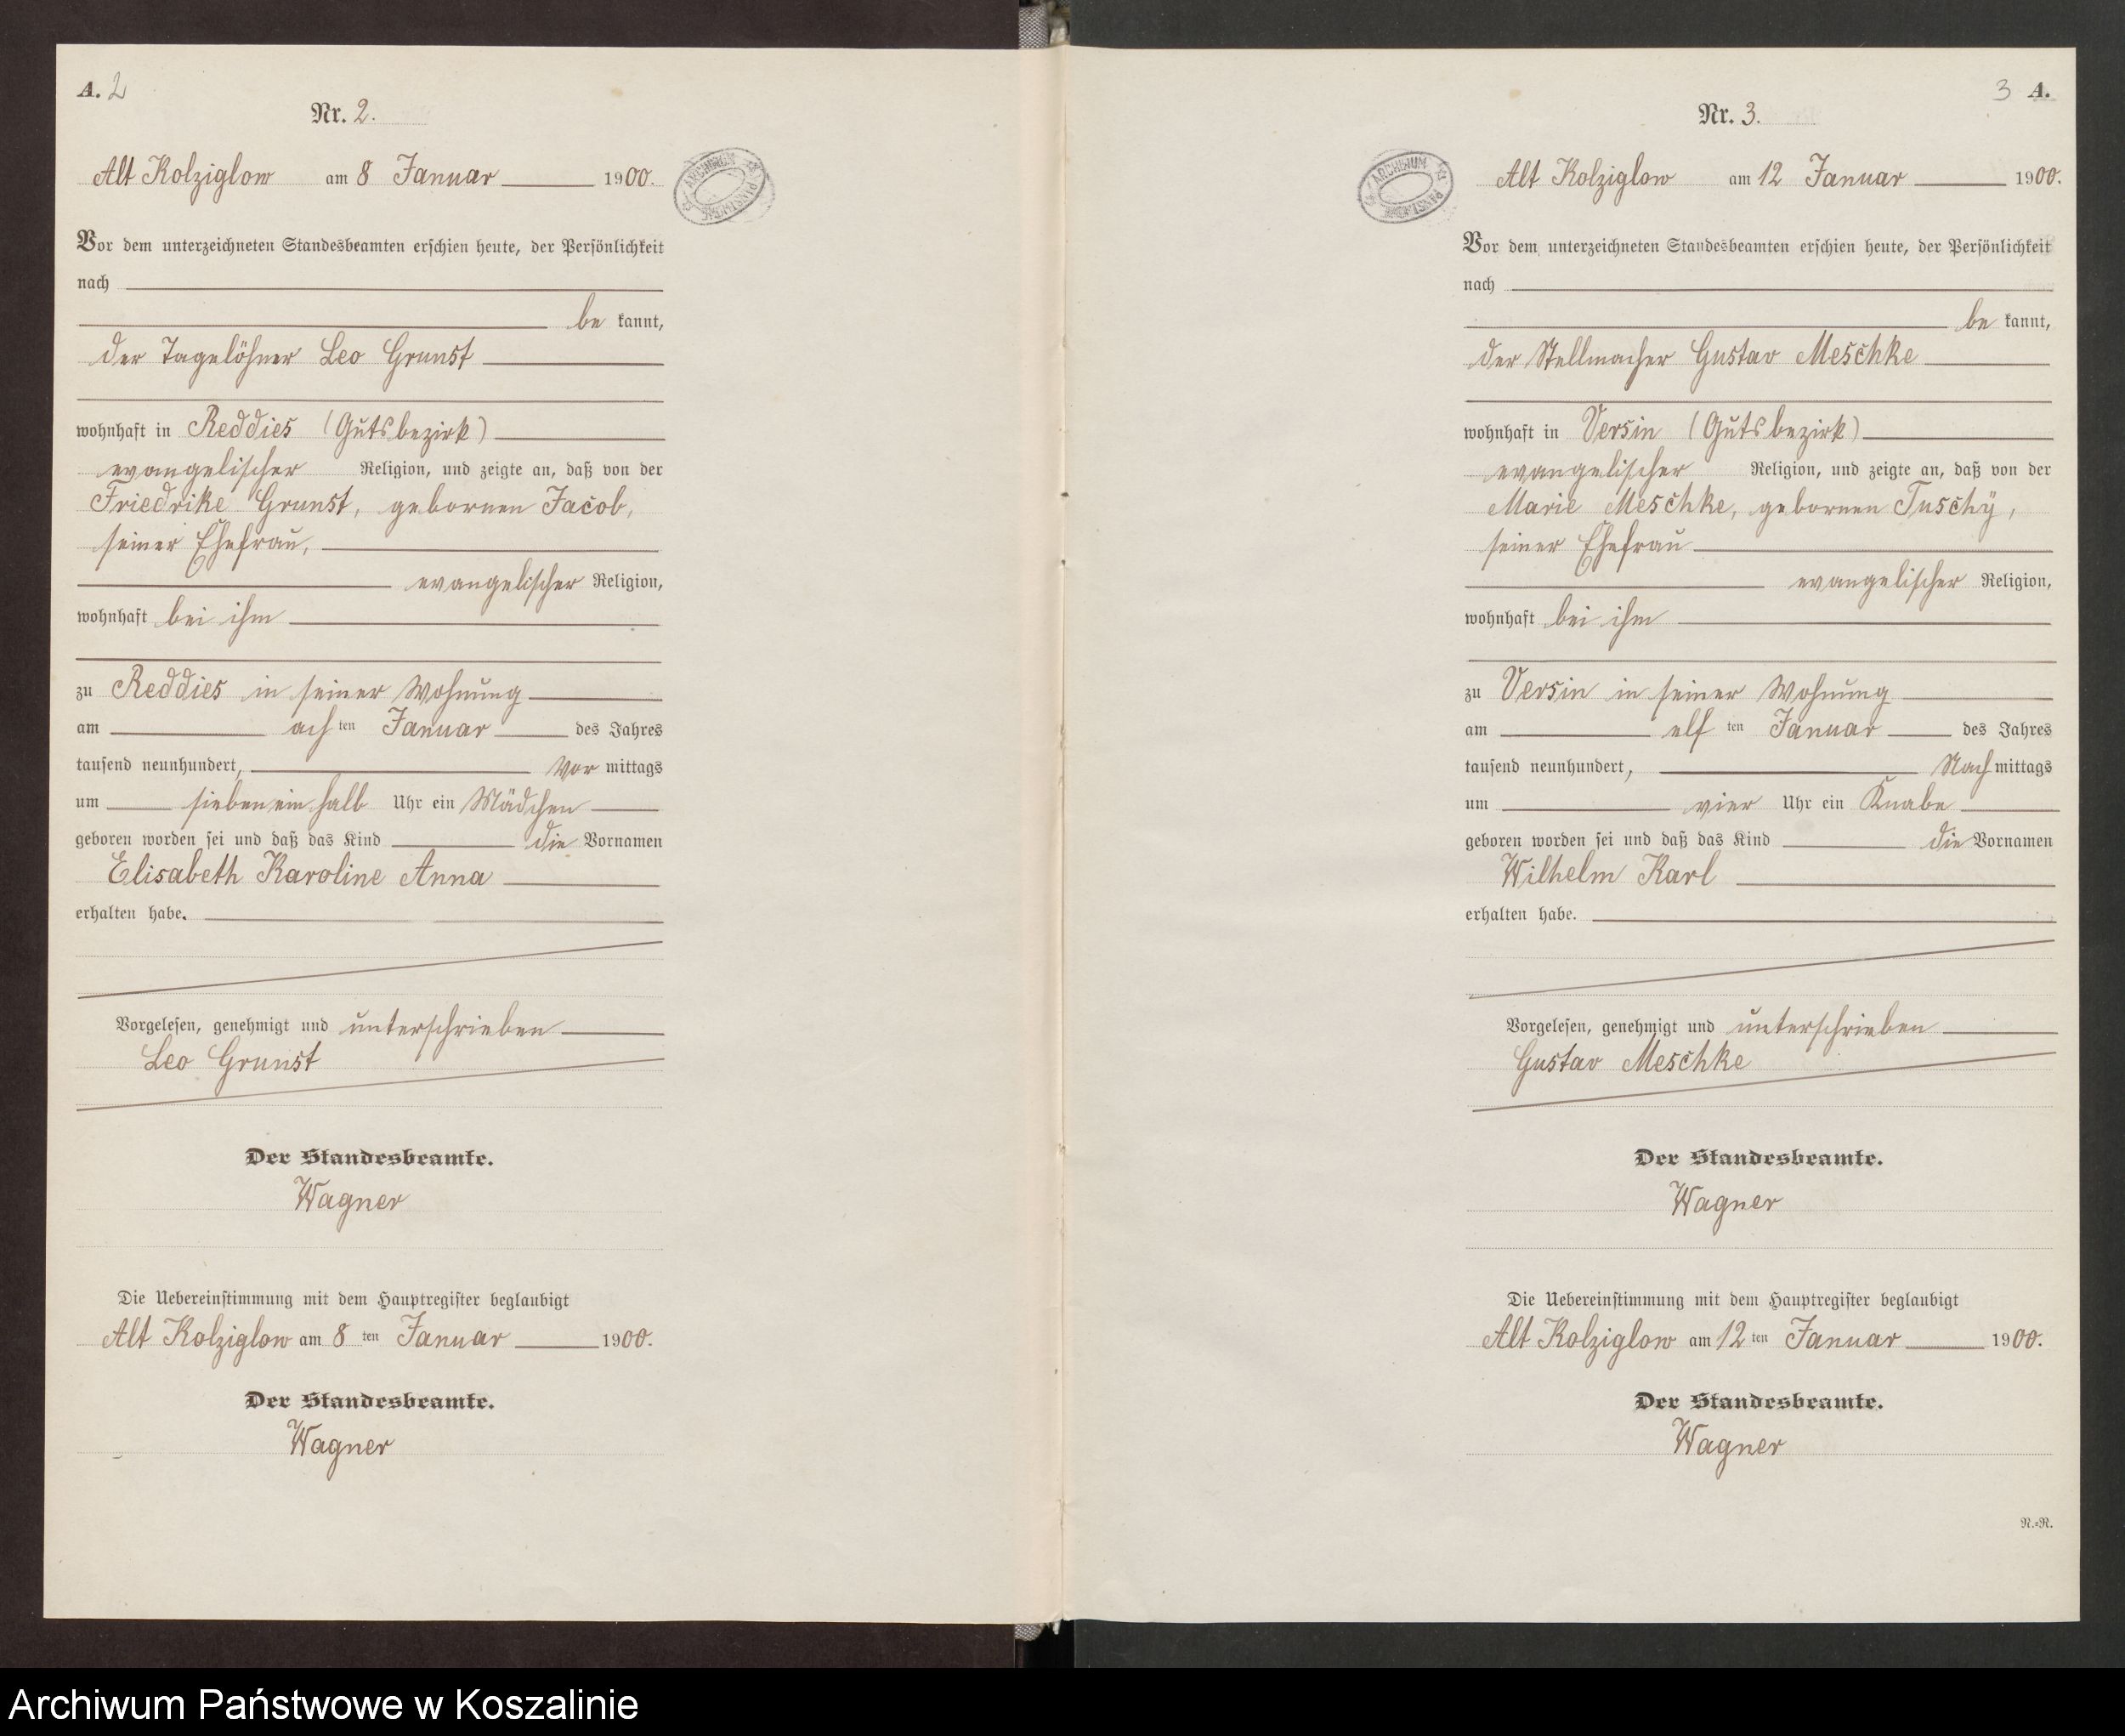 A. 2
Nr. 2.
Alt Kolziglow am 8 Januar 1900.
Vor dem unterzeichneten Standesbeamten erschien heute, der Persönlichkeit
nach
be kannt,
der Tagelöhner Leo Grunst
wohnhaft in Reddies (Gutsbezirk)
evangelischer Religion, und zeigte an, daß von der
Friedrike Grunst, gebornen Jacob,
seiner Ehefrau,
evangelischer Religion,
wohnhaft bei ihm
zu Reddies in seiner Wohnung
am achten Januar des Jahres
tausend neunhundert, Vor mittags
um sieben ein halb Uhr ein Mädchen
geboren worden sei und daß das Kind die Vornamen
Elisabeth Karoline Anna
erhalten habe.
Vorgelesen, genehmigt und unterschrieben
Leo Grunst
Der Standesbeamte.
Wagner
Die Uebereinstimmung mit dem Hauptregister beglaubigt
Alt Kolziglow am 8 ten Januar 1900.
Der Standesbeamte.
Wagner
ARCHIWUM PAŃSTWOWE
3 A.
Nr. 3.
Alt Kolziglow am 12 Januar 1900.
Vor dem unterzeichneten Standesbeamten erschien heute, der Persönlichkeit
nach
be kannt,
der Stellmacher Gustav Meschke
wohnhaft in Versin (Gutsbezirk)
evangelischer Religion, und zeigte an, daß von der
Marie Meschke, gebornen Tuschy,
seiner Ehefrau
evangelischer Religion,
wohnhaft bei ihm
zu Versin in seiner Wohnung
am elf ten Januar des Jahres
tausend neunhundert, Nach mittags
um vier Uhr ein Knabe
geboren worden sei und daß das Kind die Vornamen
Wilhelm Karl
erhalten habe.
Vorgelesen, genehmigt und unterschrieben
Gustav Meschke
Der Standesbeamte.
Wagner
Die Uebereinstimmung mit dem Hauptregister beglaubigt
Alt Kolziglow am 12 ten Januar 1900.
Der Standesbeamte.
Wagner
R.=R.
ARCHIWUM PAŃSTWOWE
Archiwum Państwowe w Koszalinie